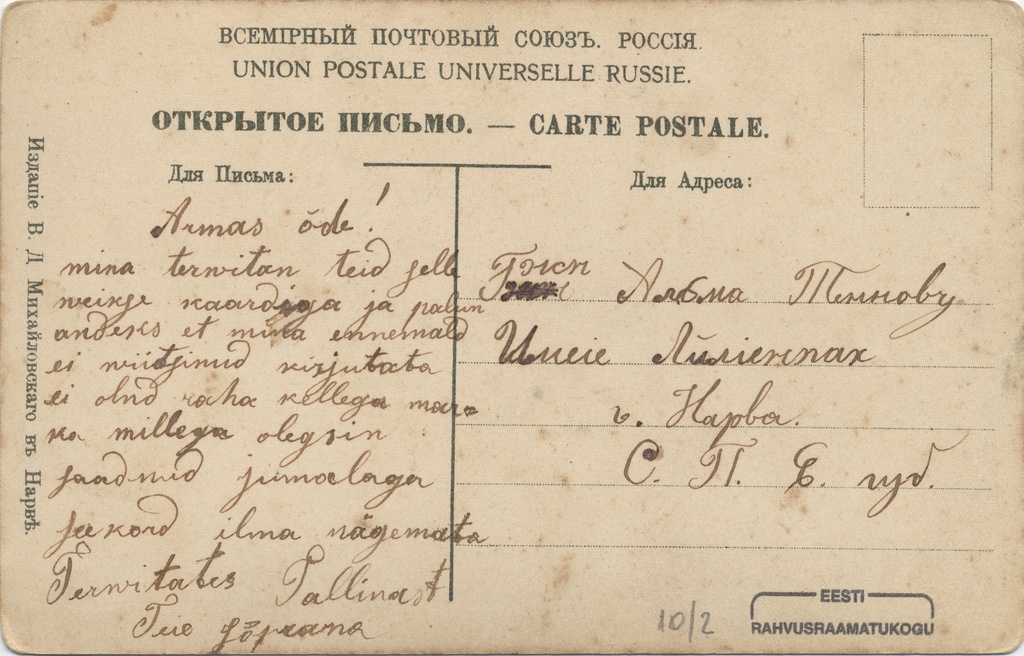 ВСЕМІРНЫЙ ПОЧТОВЫЙ СОЮЗЪ. РОССІЯ.
UNION POSTALE UNIVERSELLE RUSSIE.
ОТКРЫТОЕ ПИСЬМО. — CARTE POSTALE.
Для Письма:
Armas õde!
mina terwitan teid selle
weikse kaardiga ja palun
andeks et mina ennemald
ei wiitsinud kirjutata
ei olnd raha kellega mar=
ka millega olegsin
saadnud jumalaga
seekord ilma nägemata
Terwitates Tallinast
Teie sõprana
Для Адреса:
Гжн
Альма Теннову
Имѣіе Лиліенпах
г. Нарва.
С. П. Б. губ.
Изданіе В. Д. Михайловскаго въ Нарвѣ.
10/2
EESTI
RAHVUSRAAMATUKOGU